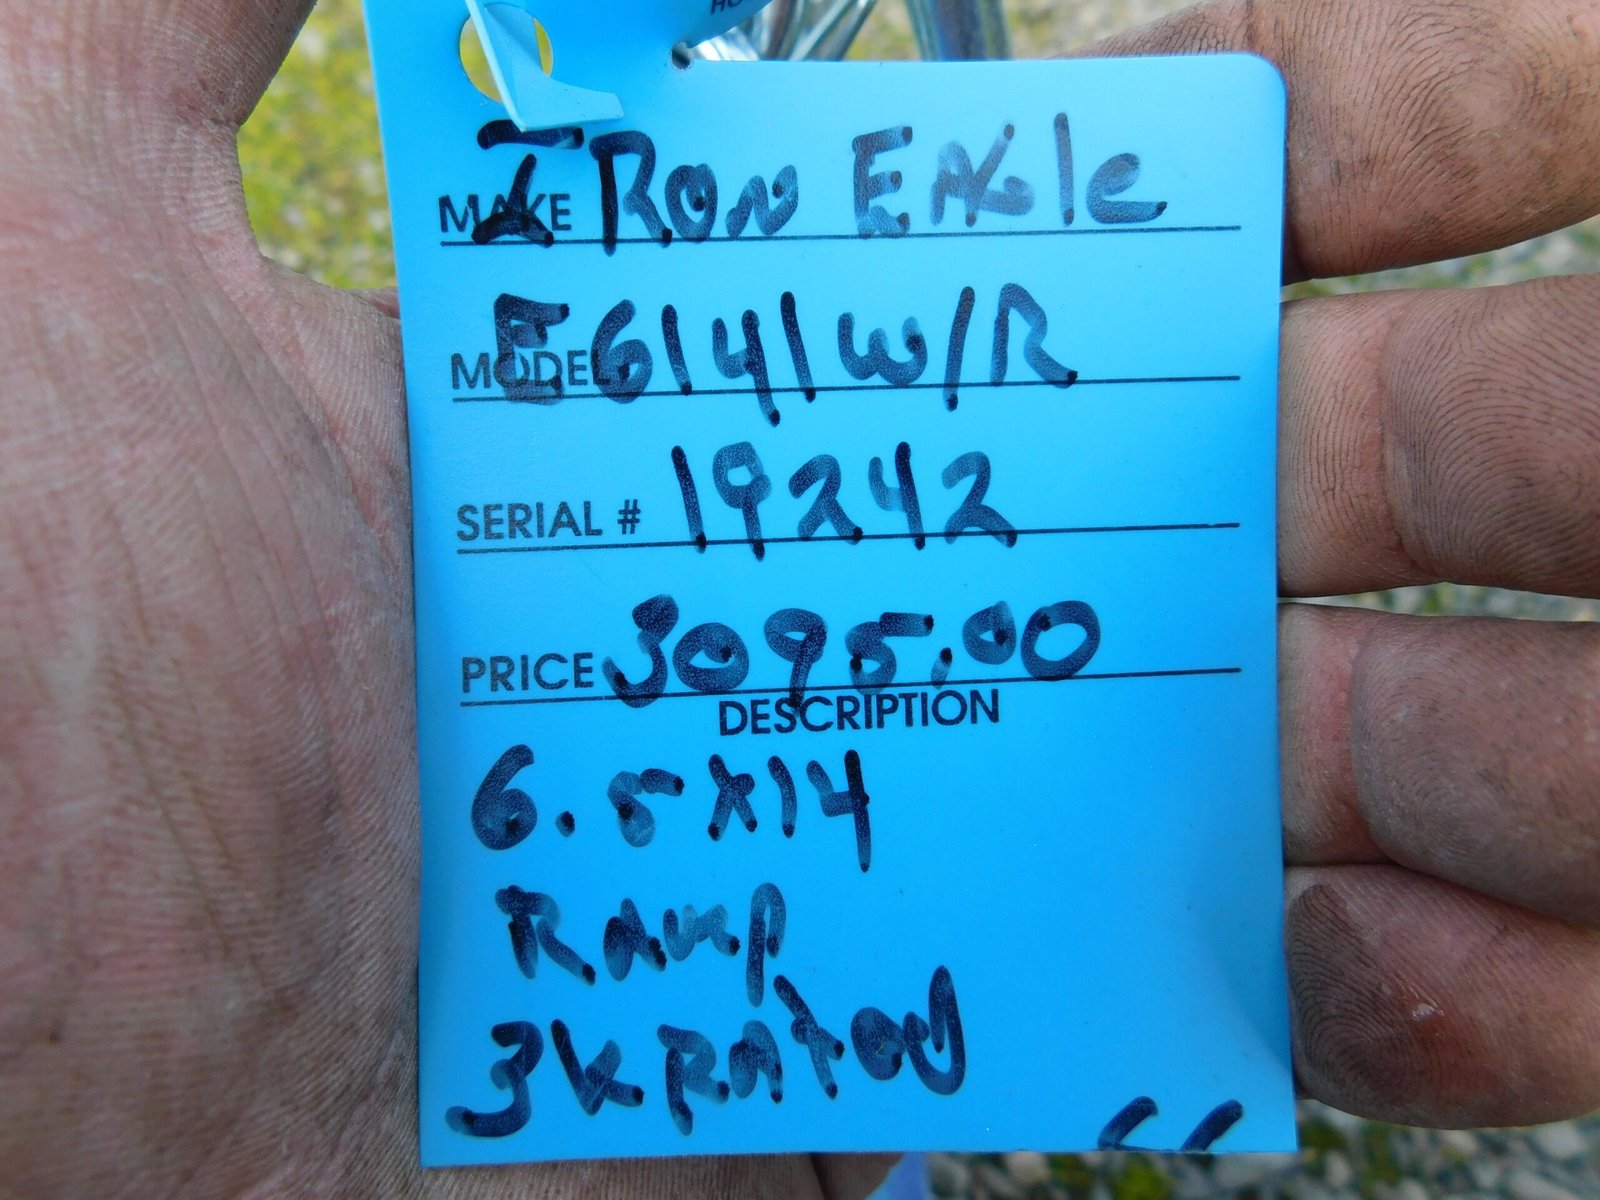 MAKE IRON EAGle
MODEL E6141W/R
SERIAL # 19242
PRICE 3095.00
DESCRIPTION
6.5x14
RAMP
3K RAted